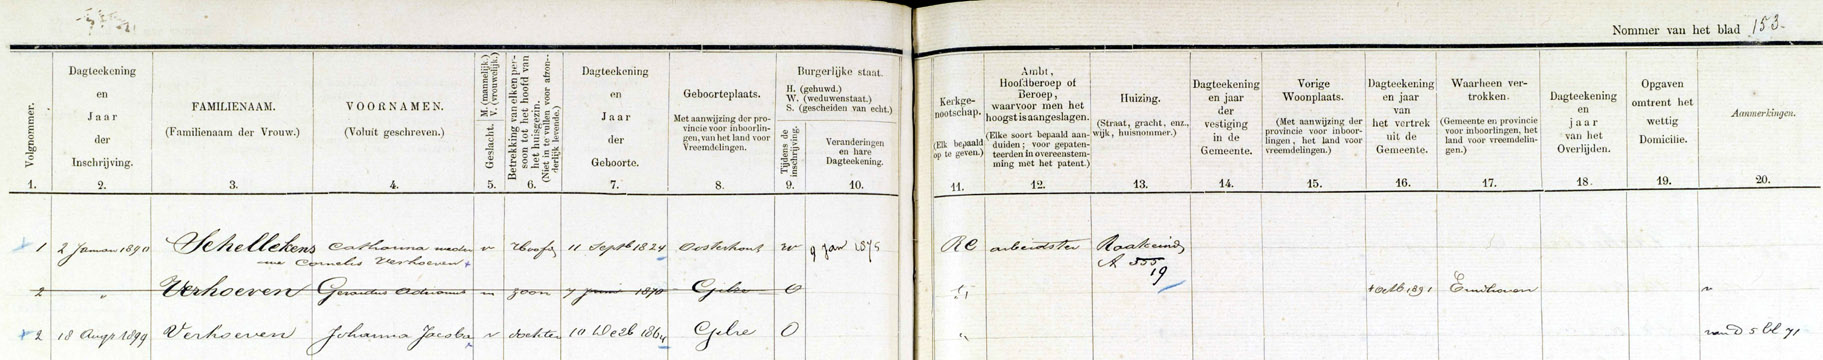 Nommer van het blad 153.
Volgnommer.
Dagteekening
en
Jaar
der
Inschrijving.
FAMILIENAAM.
(Familienaam der Vrouw.)
VOORNAMEN.
(Voluit geschreven.)
Geslacht. M. (mannelijk.)
V. (vrouwelijk.)
Betrekking van elken per-
soon tot het hoofd van
het huisgezin.
(Niet in te vullen voor afzon-
derlijk levende.)
Dagteekening
en
Jaar
der
Geboorte.
Geboorteplaats.
Met aanwijzing der pro-
vincie voor inboorlin-
gen, van het land voor
Vreemdelingen.
Burgerlijke staat.
H. (gehuwd.)
W. (weduwenstaat.)
S. (gescheiden van echt.)
Tijdens de
inschrijving.
Veranderingen
en hare
Dagteekening.
Kerkge-
nootschap.
(Elk bepaald
op te geven.)
Ambt,
Hoofdberoep of
Beroep,
waarvoor men het
hoogst is aangeslagen.
(Elke soort bepaald aan-
duiden; voor gepaten-
teerden in overeenstem-
ming met het patent.)
Huizing.
(Straat, gracht, enz.,
wijk, huisnommer.)
Dagteekening
en jaar
der
vestiging
in de
Gemeente.
Vorige
Woonplaats.
(Met aanwijzing der
provincie voor inboor-
lingen, het land voor
vreemdelingen.)
Dagteekening
en jaar
van
het vertrek
uit de
Gemeente.
Waarheen ver-
trokken.
(Gemeente en provincie
voor inboorlingen, het
land voor vreemdelin-
gen.)
Dagteekening
en
jaar
van het
Overlijden.
Opgaven
omtrent het
wettig
Domicilie.
Aanmerkingen.
1. 2. 3. 4. 5. 6. 7. 8. 9. 10. 11. 12. 13. 14. 15. 16. 17. 18. 19. 20.
1 2 Januari 1890 Schellekens Catharina v Hoofd 11 Septb 1824 Oosterhout W 9 Jan 1875 RC arbeidster Raakeind
Cornelis Verhoeven A 555
19
2 " Verhoeven Gerardus Adrianus m zoon 7 Juni 1870 Gilze O Octb 1891 Eindhoven
2 18 Augs 1899 Verhoeven Johanna Jacoba v dochter 10 Decb 1864 Gilze O " van D 5 bl 71